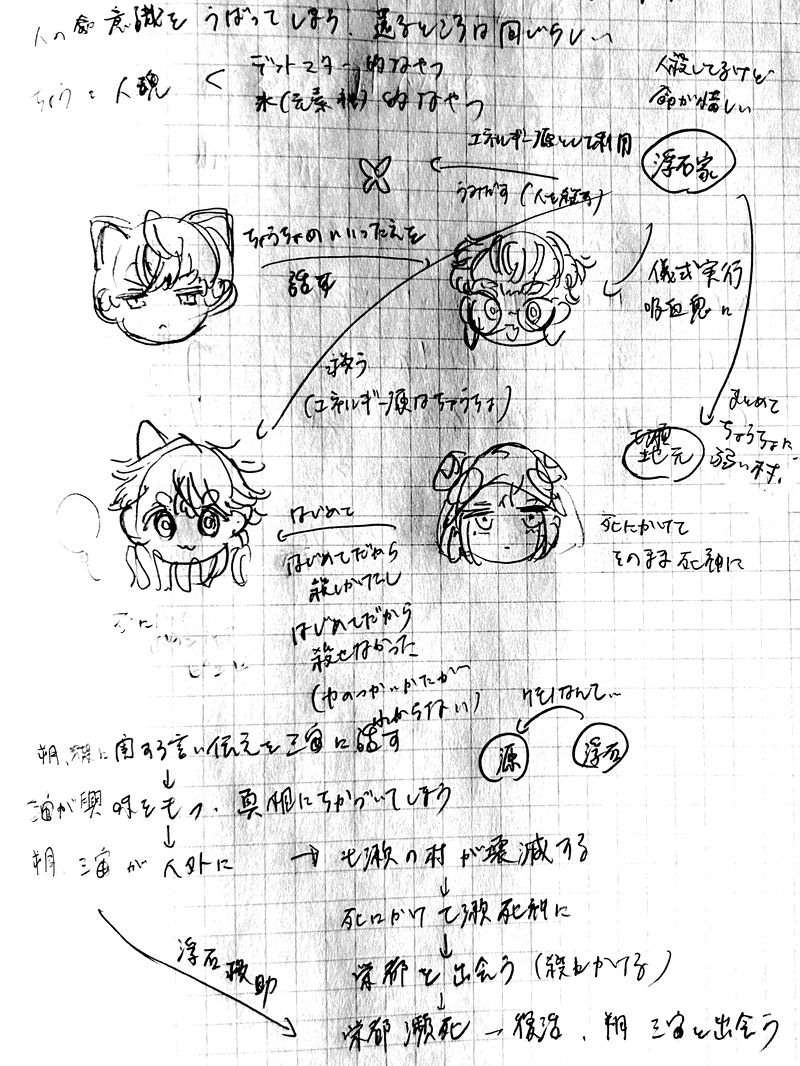 人の命、意識をうばってしまう、還るところは同じらしい
ちょうと人魂 <
デッドマター的なやつ
氷(元素 )的なやつ
人殺してるけど
命が惜しい
浮石家
エネルギー源として利用
うみだす(人を殺す)
ちょうちょのいいつたえを
話す
儀式実行
吸血鬼に
救う
(エネルギー源はちょうちょ)
まとめて
ちょうちょに
弱い村。
七瀬
地元
死にかけて
そのまま死神に
はじめて
はじめてだから
殺しかけたし
はじめてだから
殺せなかった
(力のつかいかたが
わからない)
源
浮石
朔、 に関する言い伝えを三宙に話す
↓
三宙が興味をもつ、真相にちかづいてしまう
↓
朔 三宙が人外に → 七瀬の村が壊滅する
↓
死にかけて七瀬死神に
↓
栄都と出会う(殺しかける)
↓
浮石救助
栄都瀕死→復活、朔 三宙と出会う